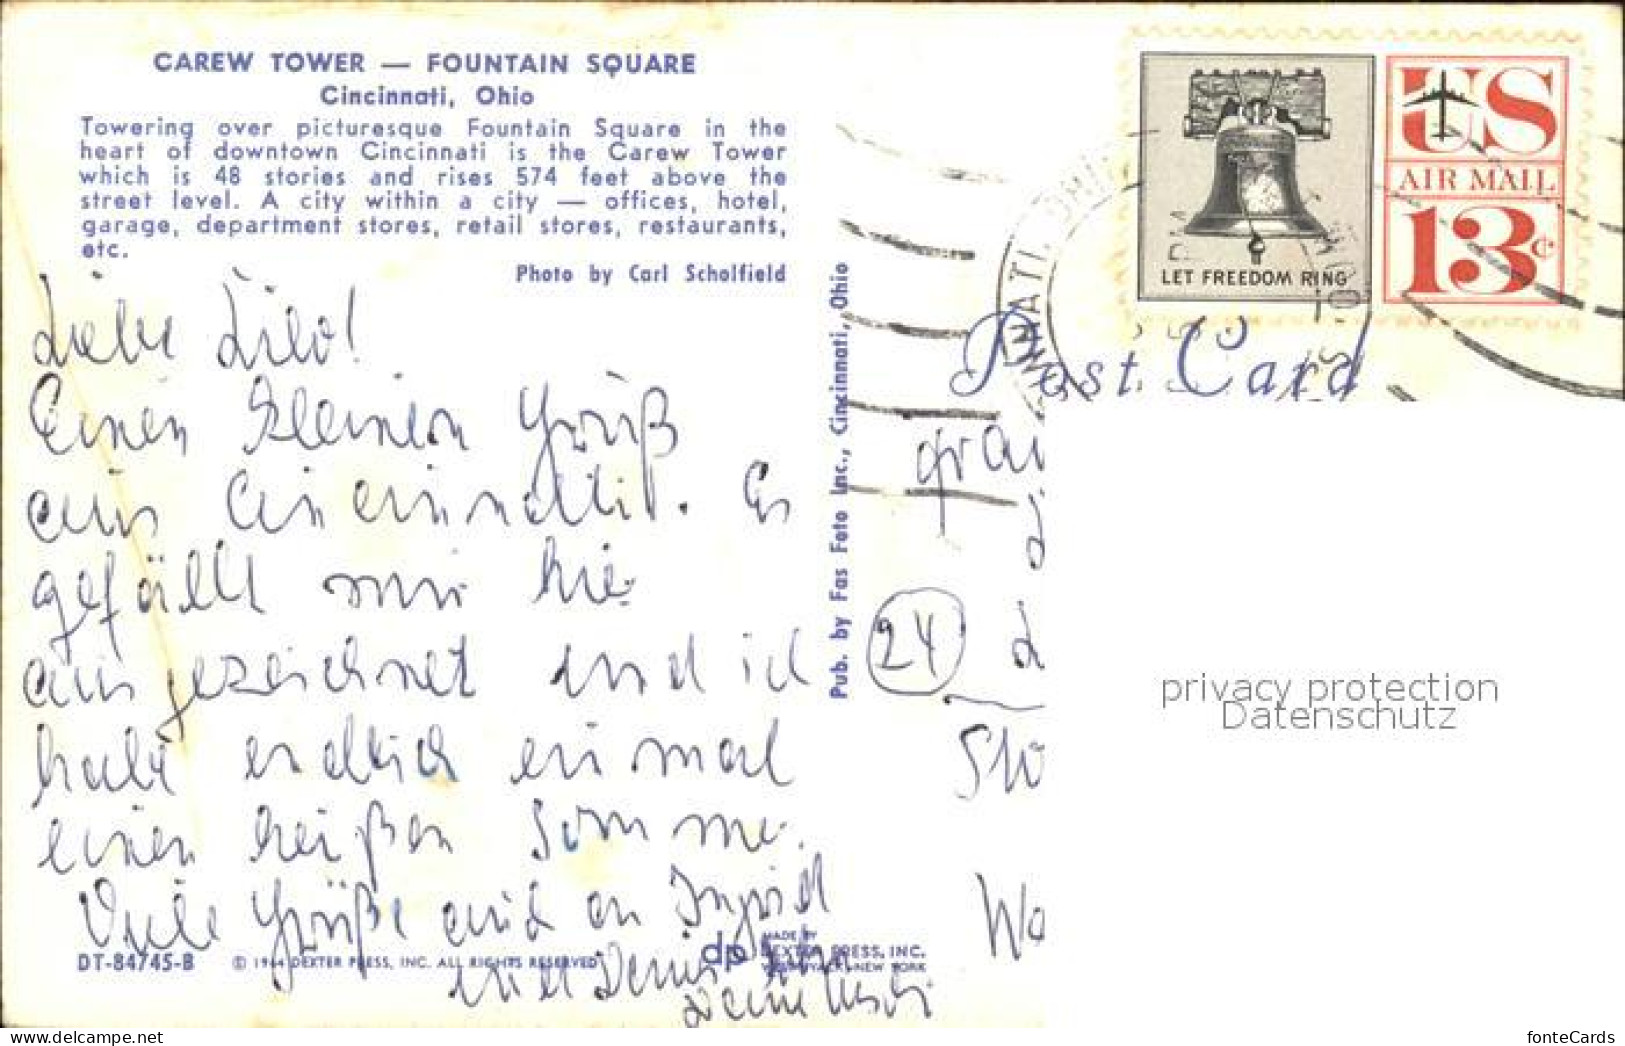 CAREW TOWER — FOUNTAIN SQUARE
Cincinnati, Ohio
Towering over picturesque Fountain Square in the
heart of downtown Cincinnati is the Carew Tower
which is 48 stories and rises 574 feet above the
street level. A city within a city — offices, hotel,
garage, department stores, retail stores, restaurants,
etc.
Photo by Carl Scholfield
Liebe Lilo!
Einen kleinen Gruß
aus Cincinnati. Es
gefällt mir hier
ausgezeichnet und ich
habe endlich einmal
einen heißen Sommer.
Viele Grüße auch an Ingrid
und Deine
DT-84745-B
© 1964 DEXTER PRESS, INC. ALL RIGHTS RESERVED
dp
MADE BY
DEXTER PRESS, INC.
WEST NYACK, NEW YORK
Pub. by Fas Foto Inc., Cincinnati, Ohio
LET FREEDOM RING
US
AIR MAIL
13¢
Post Card
24
privacy protection
Datenschutz
Lilly.at
fonteCards